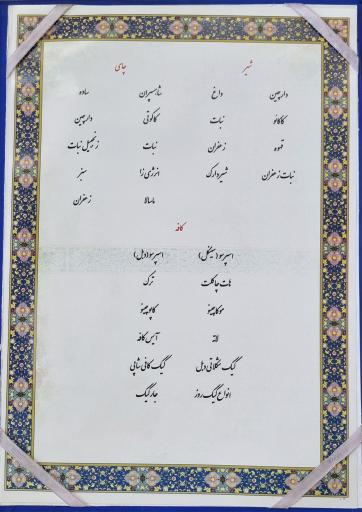 شیر چای
دارچین داغ شاهسپران ساده
کاکائو نبات کاکوتی دارچین
قهوه زعفران نبات زنجبیل نبات
نبات زعفران شیر دارک انرژی زا سبز
ماسالا زعفران
کافه
اسپرسو (سینگل) اسپرسو (دبل)
هات چاکلت ترک
موکاچینو کاپوچینو
لاته آیس کافه
کیک شکلاتی دبل کیک کافی شاپی
انواع کیک روز جارکیک